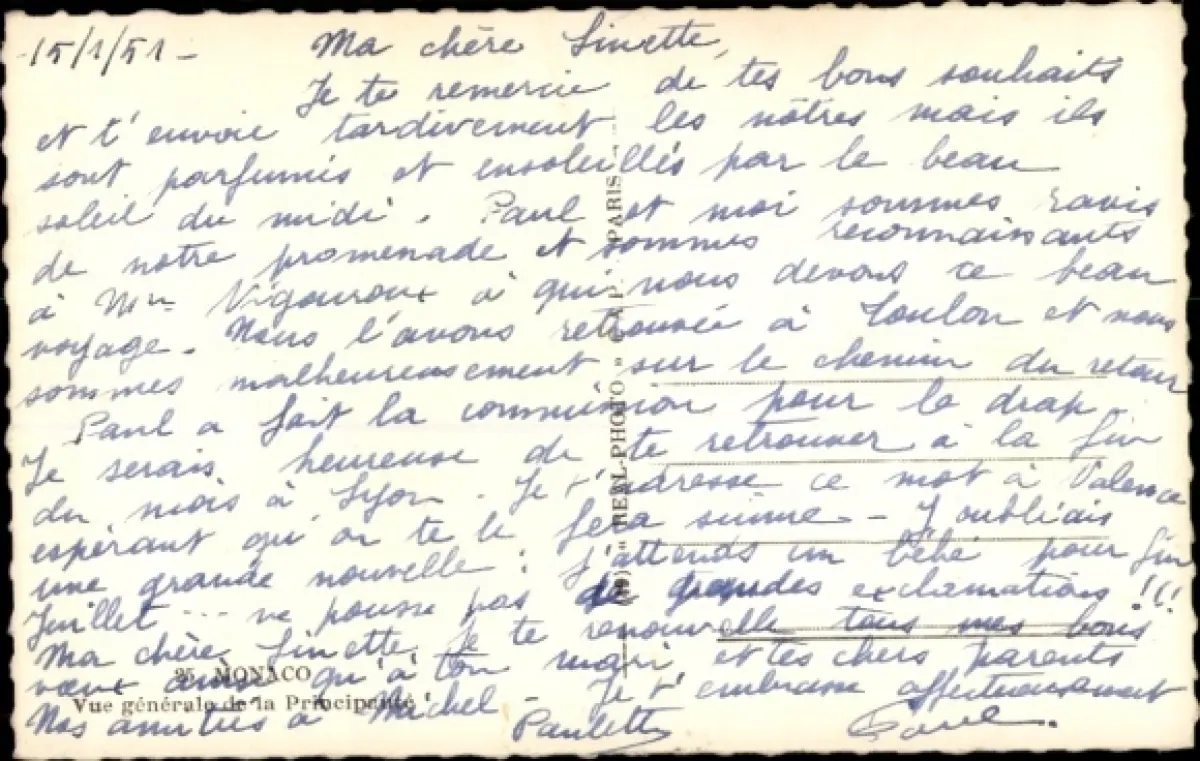 15/1/51 - Ma chère Linette,
Je te remercie de tes bons souhaits
et t'envoie tardivement les nôtres mais ils
sont parfumés et ensoleillés par le beau
soleil du midi. Paul et moi sommes ravis
de notre promenade et sommes reconnaissants
à Mr Vigouroux à qui nous devons ce beau
voyage. Nous l'avons retrouvé à Toulon et nous
sommes malheureusement sur le chemin du retour
Paul a fait la communion pour le drap.
Je serais heureuse de te retrouver à la fin
du mois à Lyon. Je t'adresse ce mot à Valence
espérant qu'on te le fera suivre -- J'oubliais
une grande nouvelle : j'attends un bébé pour fin
Juillet ... ne pousse pas de grandes exclamations !!!
Ma chère Linette je te renouvelle tous mes bons
vœux ainsi qu'à ton mari, et tes chers parents
Nos amitiés à Michel - Je t'embrasse affectueusement
Paulette Paul.
25. MONACO
Vue générale de la Principauté
" REAL-PHOTO " PARIS